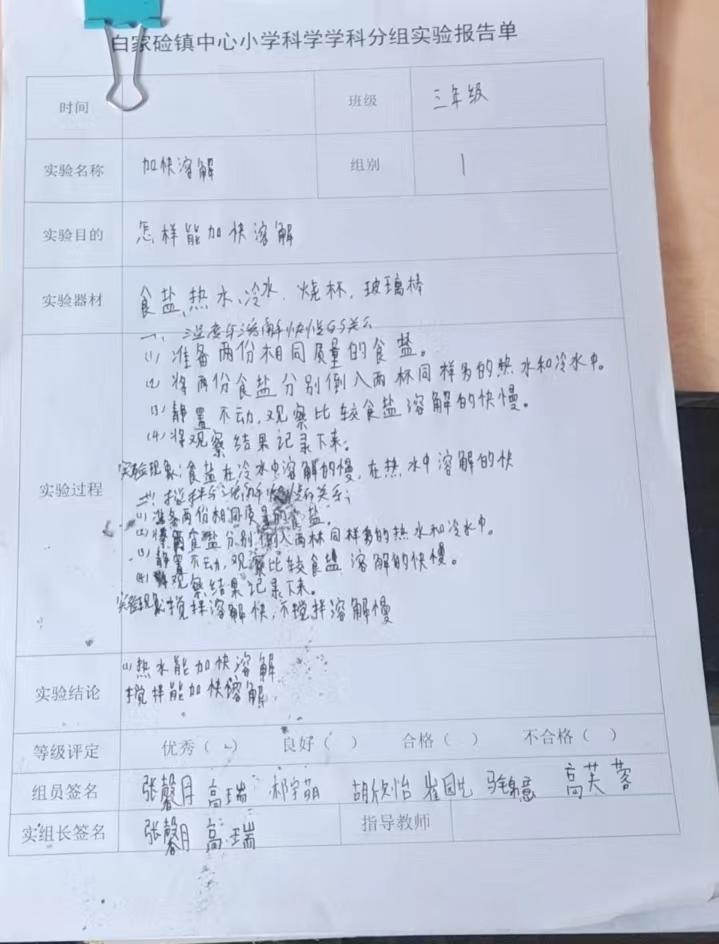 白家硷镇中心小学科学学科分组实验报告单
时间 班级 三年级
实验名称 加快溶解 组别 1
实验目的 怎样能加快溶解
实验器材 食盐、热水、冷水、烧杯、玻璃棒
实验过程
一、温度与溶解快慢的关系
(1) 准备两份相同质量的食盐。
(2) 将两份食盐分别倒入两杯同样多的热水和冷水中。
(3) 静置不动,观察比较食盐溶解的快慢。
(4) 将观察结果记录下来。
实验现象:食盐在冷水中溶解的慢,在热水中溶解的快
二、搅拌与溶解快慢的关系:
(1) 准备两份相同质量的食盐。
(2) 食盐分别倒入两杯同样多的热水和冷水中。
(3) 静置不动,观察比较食盐溶解的快慢。
(4) 观察结果记录下来。
实验现象:搅拌溶解快,不搅拌溶解慢
实验结论 (1) 热水能加快溶解
搅拌能加快溶解.
等级评定 优秀( ) 良好( ) 合格( ) 不合格( )
组员签名 张馨月 高瑞 祁宇萌 胡欣怡 马锦意 高芙蓉
实组长签名 张馨月 高瑞 指导教师